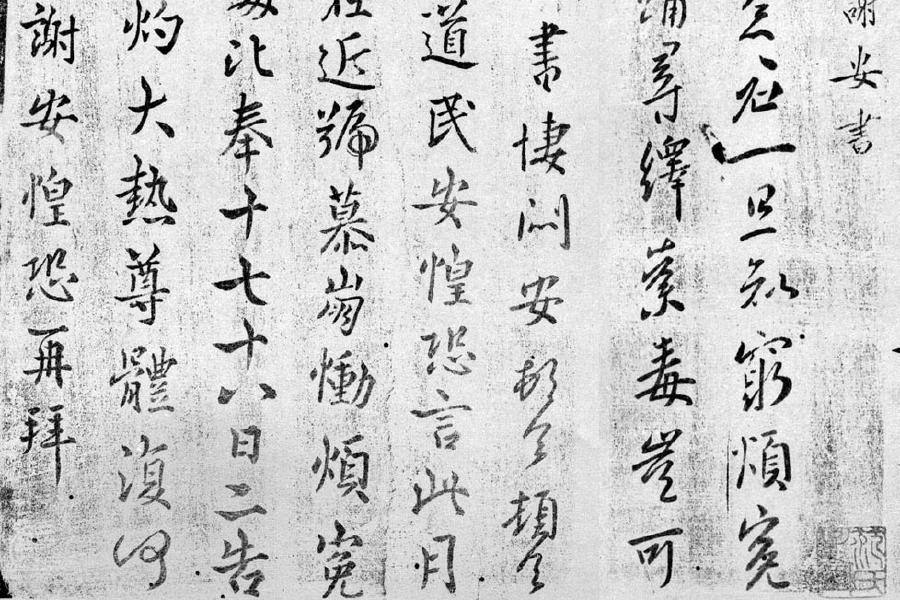 謝安書
念君一旦知窮煩冤
踊尋繹荼毒豈可
書悽悶安頓首頓首
道民安惶恐言此月
在近號慕崩慟煩冤
比奉十七十八日二告
灼大熱尊體復何
謝安惶恐再拜